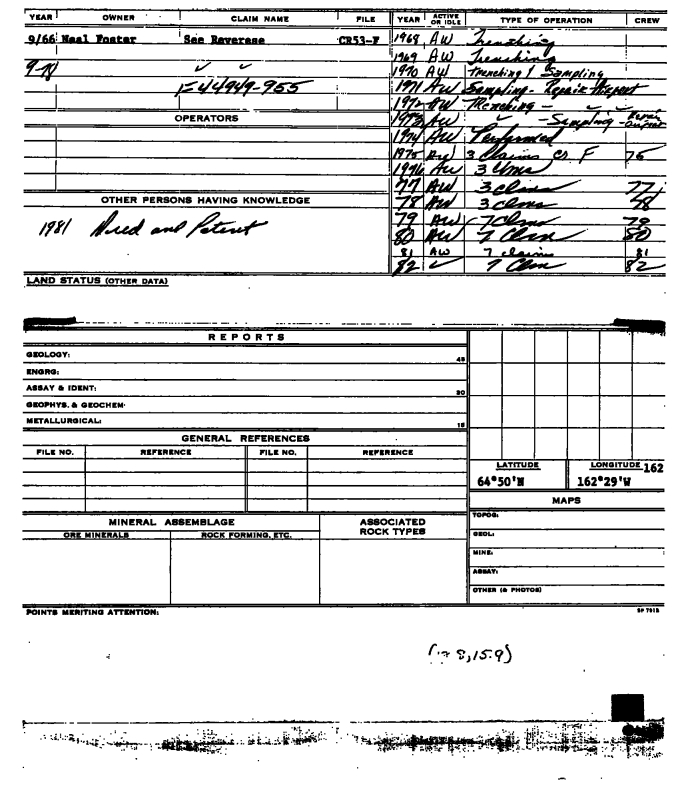 YEAR OWNER CLAIM NAME FILE YEAR ACTIVE OR IDLE TYPE OF OPERATION CREW
9/66 Neal Foster See Reverese CR53-F 1968 AW Trenching
1969 AW Trenching
9-78 ✓ ✓ 1970 AW Trenching & Sampling
F-44949-955 1971 AW Sampling - Repair Airport
1972 AW Trenching -
OPERATORS 1973 AW ✓ - Sampling - Repair Airport
1974 AW Performed
1975 3 Claims CR F 75
1976 AW 3 Clms
77 AW 3 clms 77
OTHER PERSONS HAVING KNOWLEDGE 78 AW 3 clms 78
1981 and Patent 79 AW 7 Clms 79
80 AW 7 Clms 80
81 AW 7 claims 81
82 ✓ 7 Clms 82
LAND STATUS (OTHER DATA)
REPORTS
GEOLOGY: 45
ENGRG:
ASSAY & IDENT: 30
GEOPHYS. & GEOCHEM.
METALLURGICAL: 15
GENERAL REFERENCES
FILE NO. REFERENCE FILE NO. REFERENCE
LATITUDE LONGITUDE 162
64°50'N 162°29'W
MAPS
MINERAL ASSEMBLAGE ASSOCIATED ROCK TYPES TOPOG:
ORE MINERALS ROCK FORMING, ETC. GEOL:
MINE:
ASSAY:
OTHER (& PHOTOS)
POINTS MERITING ATTENTION:
8,15.9)